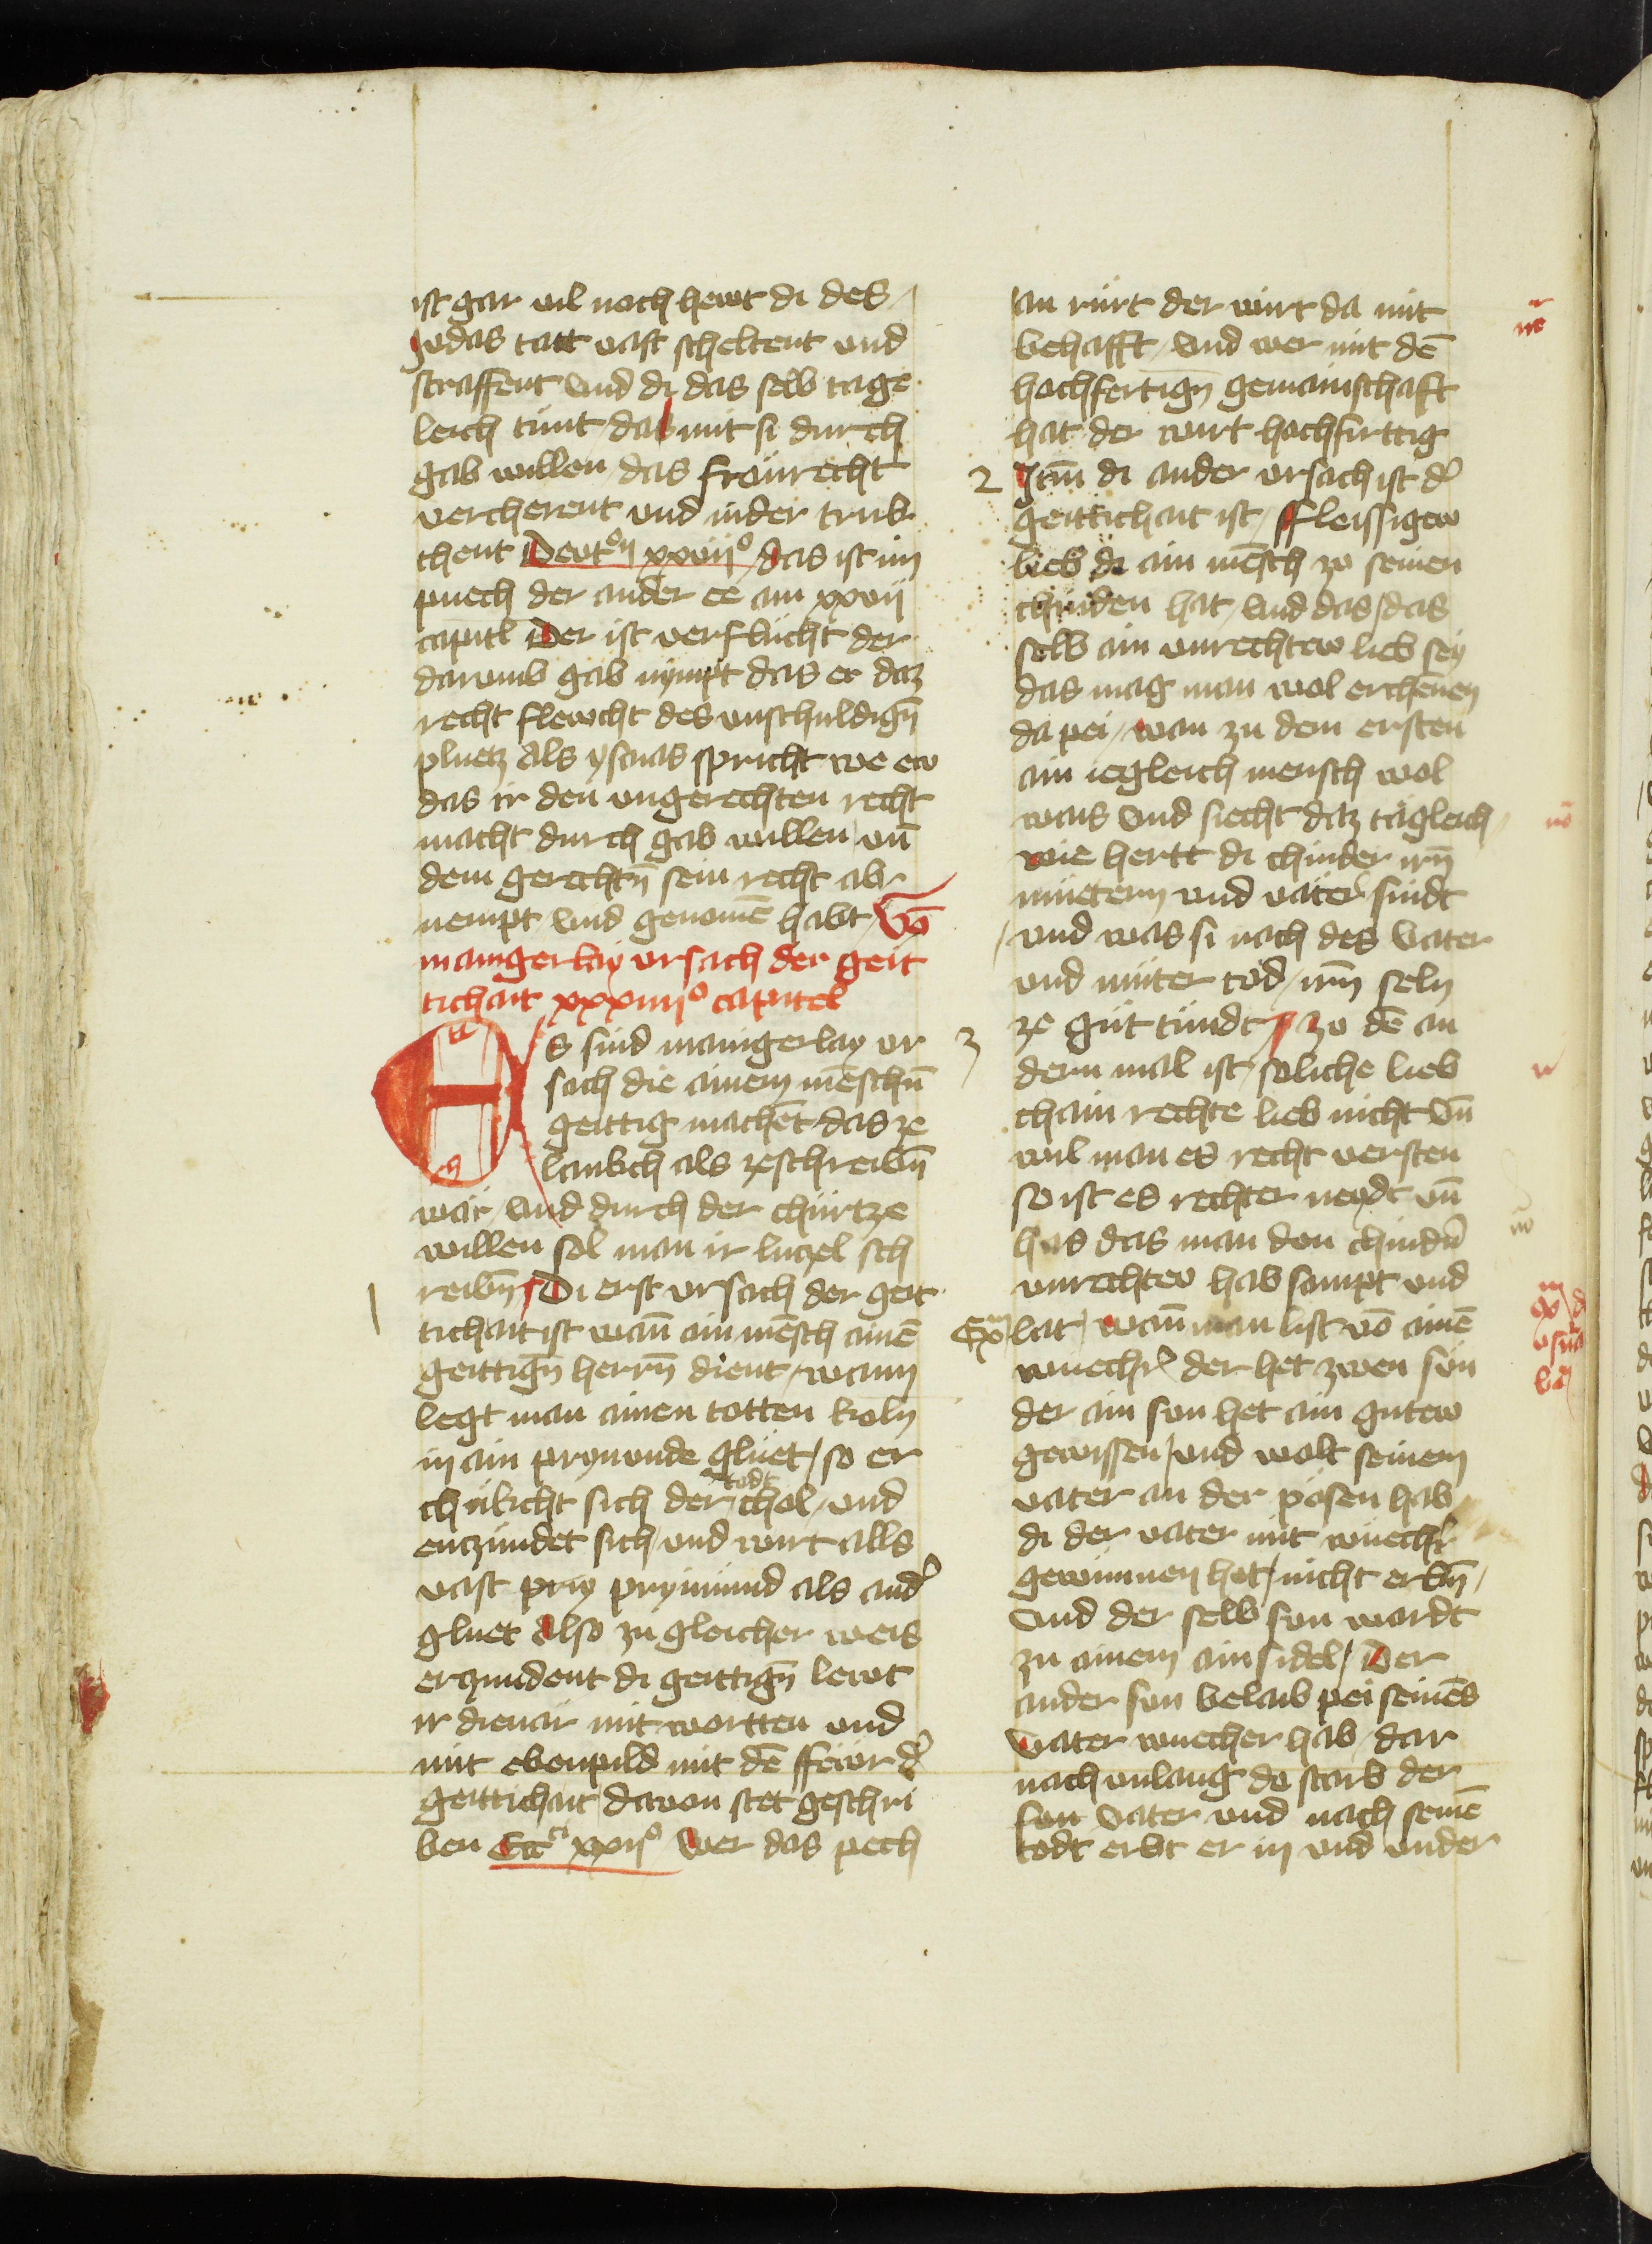 ist gar vil noch hewt di des
Judas tatt vast scheltent vnd
straffent vnd di das selb tage
leich tünt das mit si durch
gab willen das frönrecht
vercherent vnd nider truk
chent Dewt°ij xxvij° das ist im
puech der ander ee am xxvij
capitl Der ist verflücht der
darumb gab nympt das er daz
recht flewcht des vnschuldign̄
pluetz Als ysaias spricht we ew
das ir den vngerechten recht
macht durch gab willen vn̄
dem gerechtn̄ sein recht ab
nempt vnd genomē habt Vō
maingerlay vrsach der geit
tichait xxxiiij° capitel
Es sind maingerlay vr
sach die ainem mēschn̄
geittig machēt das ze
lankch als zeschreibn̄
wär vnd durch der chürtze
willen sol man ir luczel sch
reibn̄ Di erst vrsach der geit
1
tichait ist wan̄ ain mēsch ainē
geittign̄ herrn̄ dient wann
legt man ainen totten koln
in ain prynnunde glüet so er
chükcht sich der todt chol vnd
enczündet sich vnd wirt alls
vast priy prynnund als and̄
gluet Also zu gleicher weis
erczundent di geittign̄ lewt
ir dienär mit wortten vnd
mit ebenpild mit dē ffewr d̄
geittichait davon stet geschri
ben Ecc^ci xxii° Wer das pech
an rürt der wirt da mit
behafft vnd wer mit dē
hochfertign̄ gemainschaft
hat der wirt hochfirttig
2 Itm̄ di ander vrsach ist d̄
geittichait ist ffleissigew
lieb di ain mēsch zo seinen
chinden hat vnd das das
selb ain vnrechtew lieb sey
das mag man wol erchēnen
da pei wan zu dem ersten
ain iegleich mensch wol
wais vnd siecht daz tägleich
wie hertt di chinder irn̄
müetern vnd väter sindt
vnd was si nach des Vater
vnd müter tod irn̄ seln
3 ze güt tündt zo dē an
dern mal ist soliche lieb
chain rechte lieb nicht vn̄
wil man es recht versten
so ist es rechter neydt vn̄
has das man den chindn̄
vnrechtew hab sampt vnd
Exm lat wan̄ man list vō ainē
wuechr̄ der het zwen sün
der ain sun het ain gutew
gewissen vnd wolt seinem
vater an der pösen hab
di der vater mit wüechr̄
gewunnen het nicht erbn̄
vnd der selb sun wardt
zu ainem ainsidel Der
ander sun belaib pei seines
vater wuecher hab dar
nach vnlang do starb der
sun Vater vnd nach seinē
todt erbt er in vnd vnder